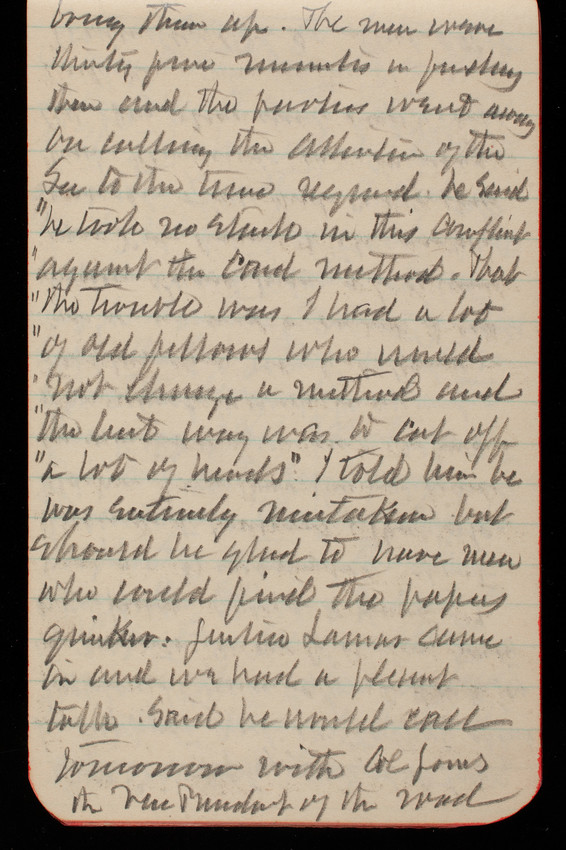 bring them up. The men were
thirty five minutes in finding
them and the parties went away
On calling the attention of the
Sec to the time required. he said
"he took no stock in this conflict
"against the card method. That
"the trouble was I had a lot
"of old fellows who would
"not change a method and
"the best way was to cut off
"a lot of heads" I told him he
was entirely mistaken but
should be glad to have men
who could find the papers
quicker. Justice Lamar came
in and we had a pleasant
talk. Said he would call
tomorrow with Col Jones
the Vice President of the road